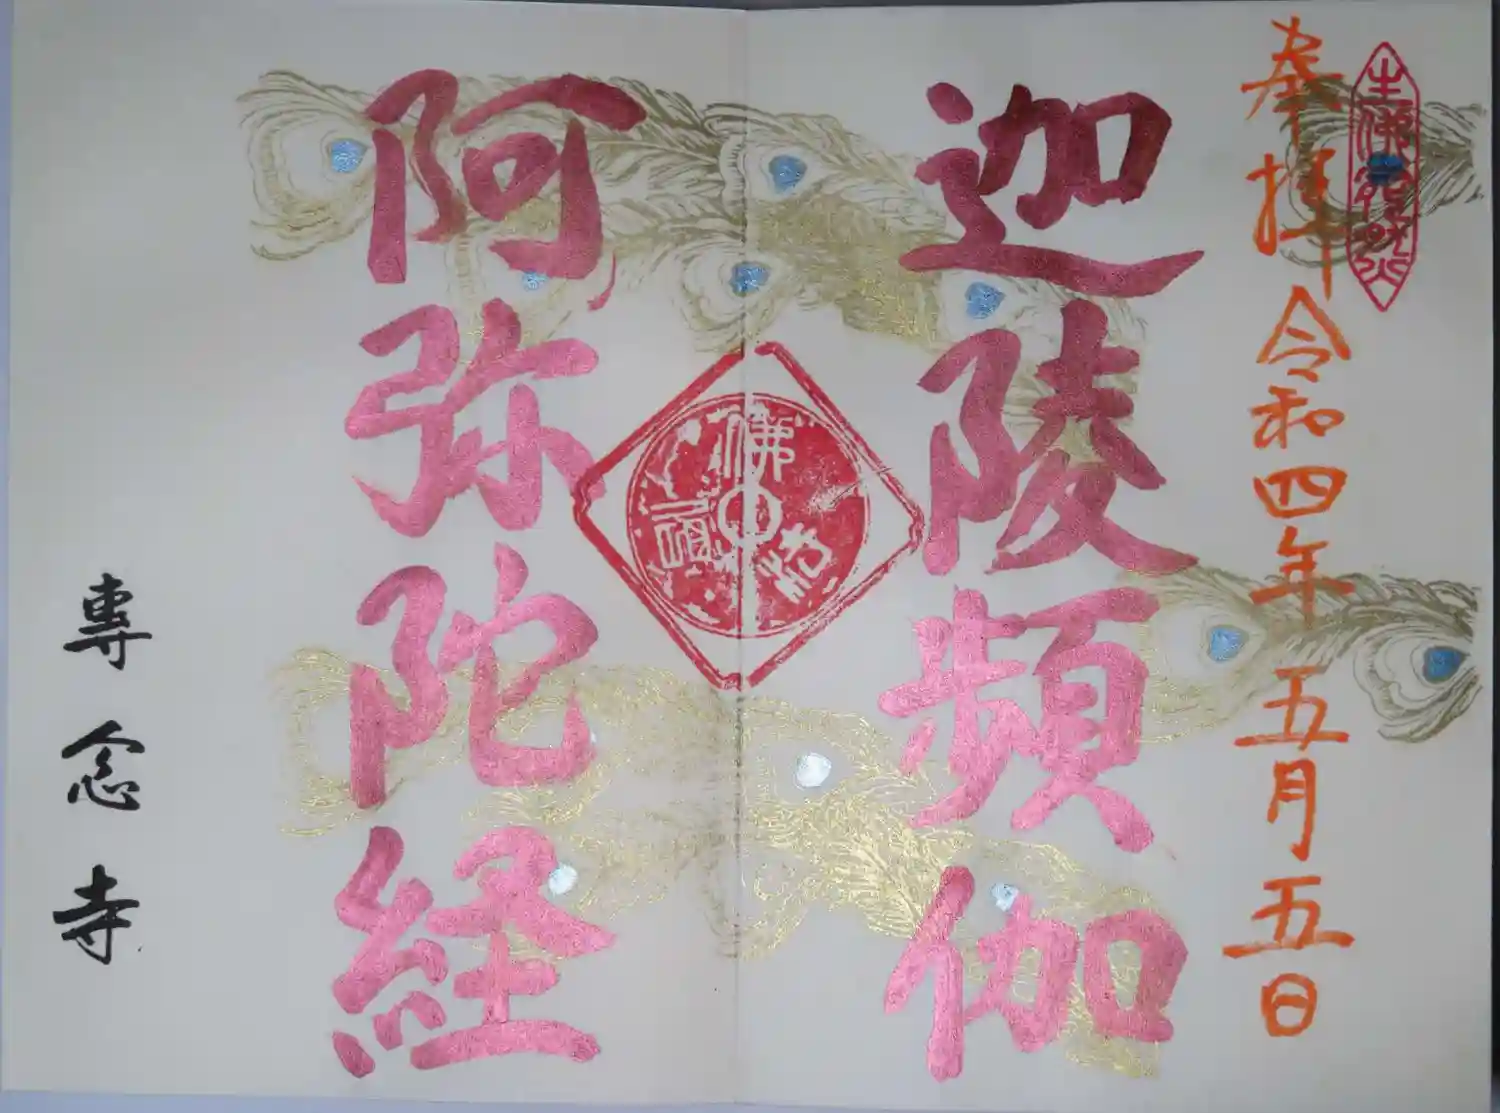 奉拝 令和四年五月五日
迦陵頻伽
阿弥陀経
專念寺